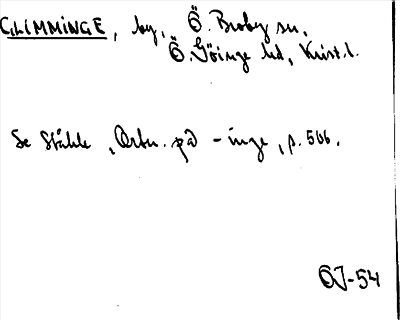 GLIMMINGE, by, Ö. Broby sn,
Ö. Göinge hd, Krist. l.
Se Ståhle, Ortn. på -inge, p. 506.
ÖJ-54